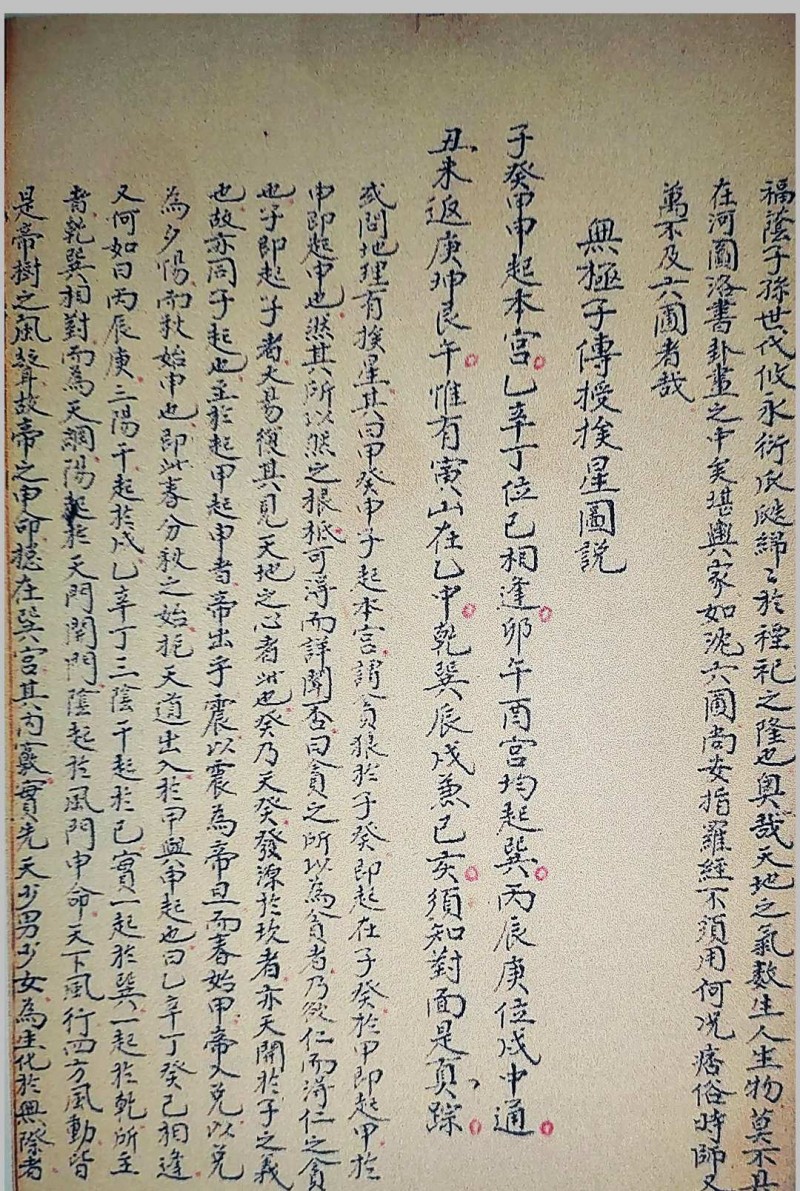 福蔭子孫世代攸永衍瓜瓞綿々於禋祀之隆也奥哉天地之氣數生人生物莫不具
在河圖洛書卦畫之中矣堪輿家如泥六圃尚妄指羅經不須用何况痞俗時師又
萬不及六圃者哉
無極子傳授挨星圖説
子癸甲申起本宫乙辛丁位已相逢卯午酉宮均起巽丙辰庚位戌中通
丑未返庚坤艮午惟有寅山在乙中乾巽辰戌兼已亥須知對面是真踪
或問地理有挨星其曰甲癸申子起本宫謂貪狼於子癸即起在子癸於甲即起甲於
申即起申也然其所以然之根柢可得而詳聞否曰貪之所以為貪者乃欲仁而得仁之貪
也子即起子者大易復其見天地之心者此也癸乃天癸發源於坎者亦天開於子之義
也故亦同子起也至於起甲起申者帝出乎震以震為帝旦而春始甲帝入兑以兑
為夕惕而秋始申也即此春分秋之始扼天道出入於甲與申起也曰乙辛丁癸已相逢
又何如曰丙辰庚三陽干起於戌乙辛丁三陰干起於已實一起於巽一起於乾所主
者乾巽相對而為天綱陽起於天門開門陰起於風門申命天下風行四方風動皆
是帝樹之風聲故帝之申命總在巽宫其内藴實先天少男少女為生化於無際者